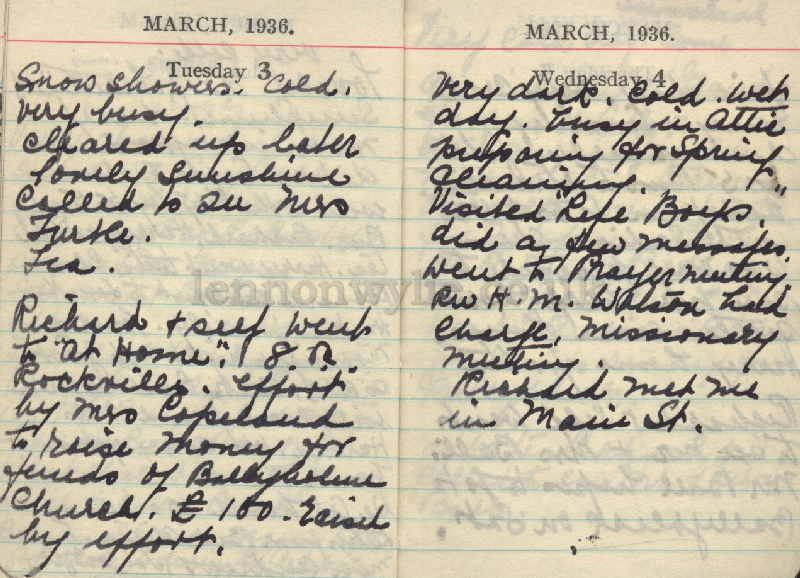 MARCH, 1936.
Tuesday 3
Snow showers. Cold.
very busy.
cleared up later
lovely sunshine
Called to see Mrs
Turke.
Tea.
Richard & self went
to "At Home". 8
Rockville. effort
by Mrs Copeland
to raise money for
funds of Ballyholme
Church. £100. raised
by effort.
MARCH, 1936.
Wednesday 4
Very dark. Cold. wet
day. busy in Attic
preparing for Spring
Cleaning.
Visited "Refe Boys."
did a few messages.
went to Prayer meeting
Rev H. M. Watson had
Charge, Missionary
meeting.
Richard met me
in Main St.
lennonwylie.co.uk